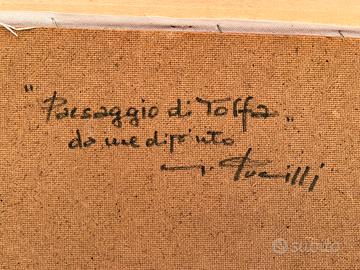 "Paesaggio di Tolfa"
da me dipinto
subito